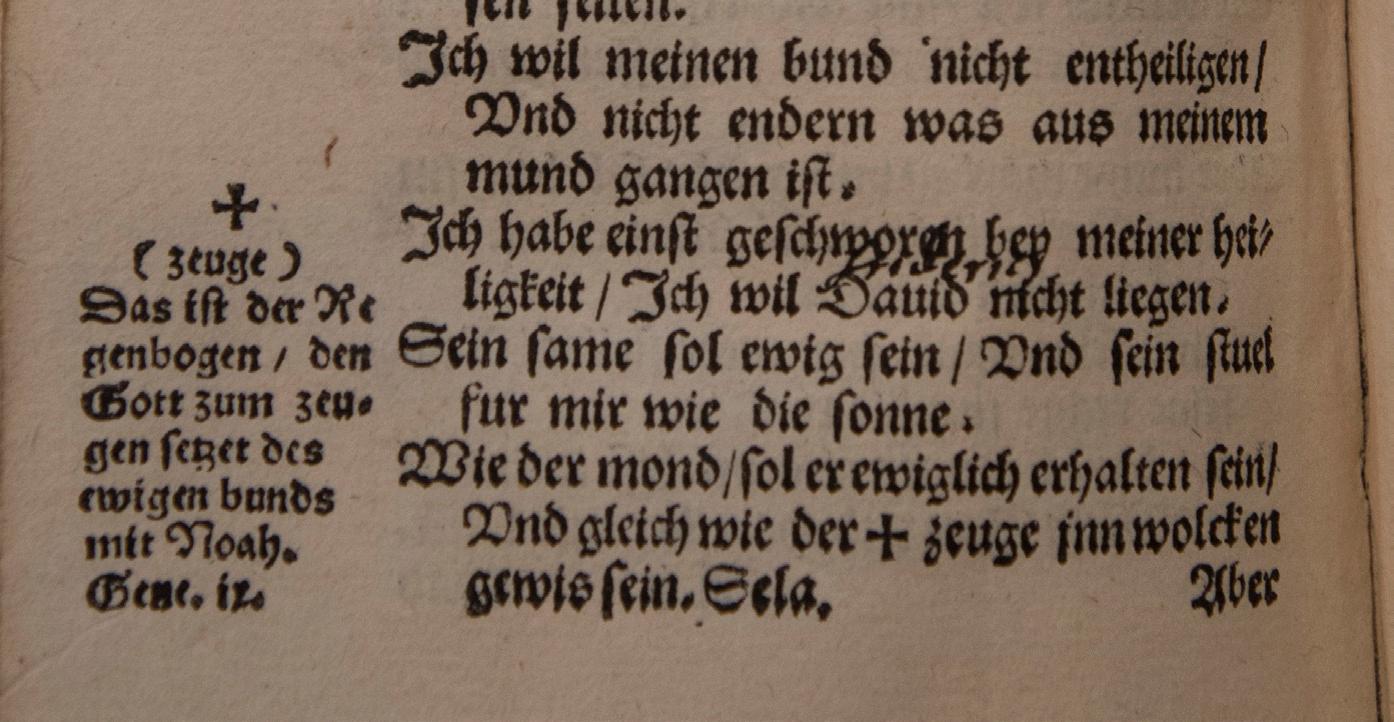 Ich wil meinen bund nicht entheiligen/
Vnd nicht endern was aus meinem
mund gangen ist.
Ich habe einst geschworen bey meiner hei⸗
ligkeit / Ich wil Dauid nicht liegen.
Sein same sol ewig sein / Vnd sein stuel
fur mir wie die sonne.
Wie der mond/sol er ewiglich erhalten sein/
Vnd gleich wie der + zeuge jnn wolcken
gewis sein. Sela.
Aber
+
( zeuge )
Das ist der Re
genbogen / den
Gott zum zeu⸗
gen setzet des
ewigen bunds
mit Noah.
Gene. ix.